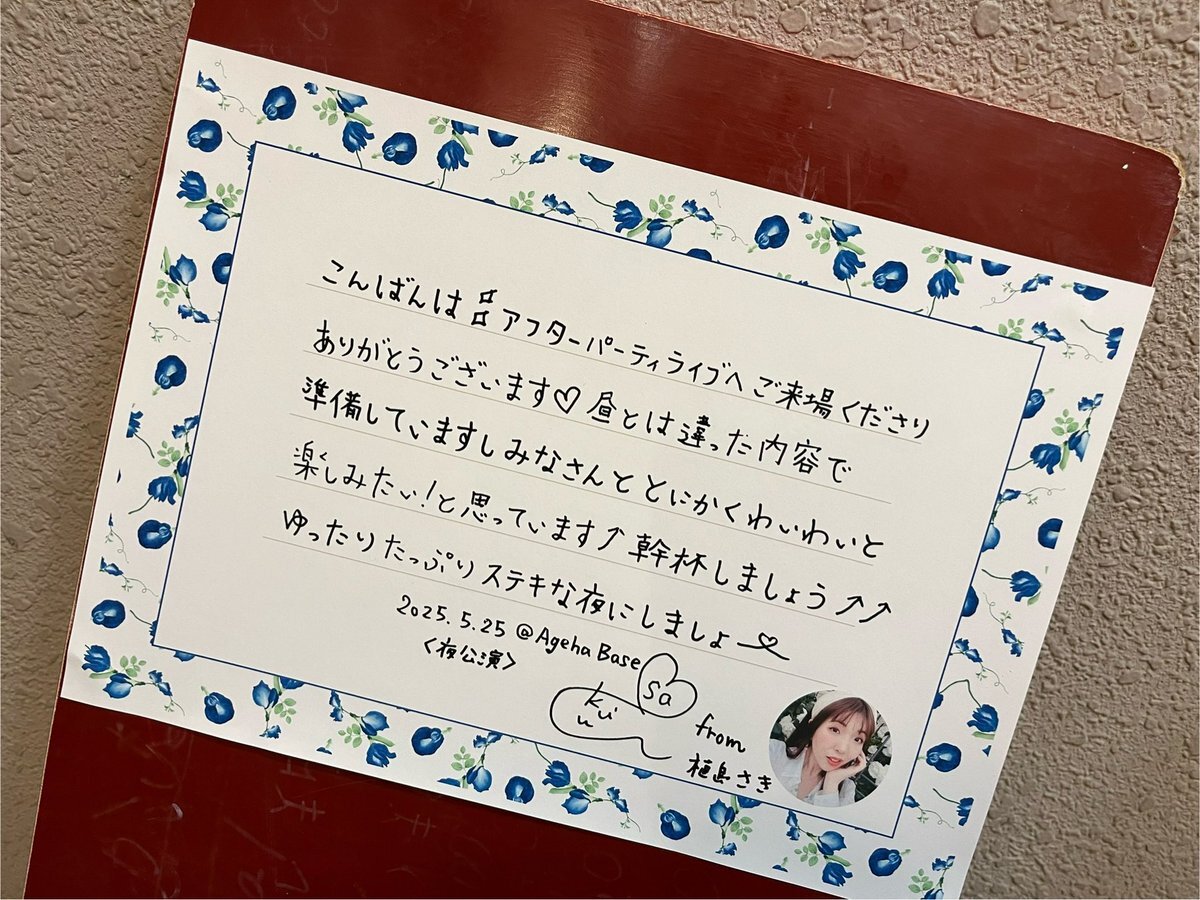 こんばんは♫アフターパーティライブへご来場くださり
ありがとうございます♡昼とは違った内容で
準備していますしみなさんととにかくわいわいと
楽しみたい!と思っています↑幹杯しましょう↑↑
ゆったりたっぷりステキな夜にしましょ〜♡
2025.5.25 @Ageha Base
〈夜公演〉
Sa
ki
from
植島さき